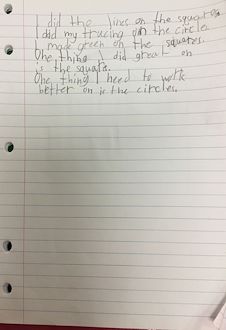 I did the lines on the squares
I did my tracing on the circles
I made green on the squares.
One thing I did great on
is the square.
One thing I need to work
better on is the circles.